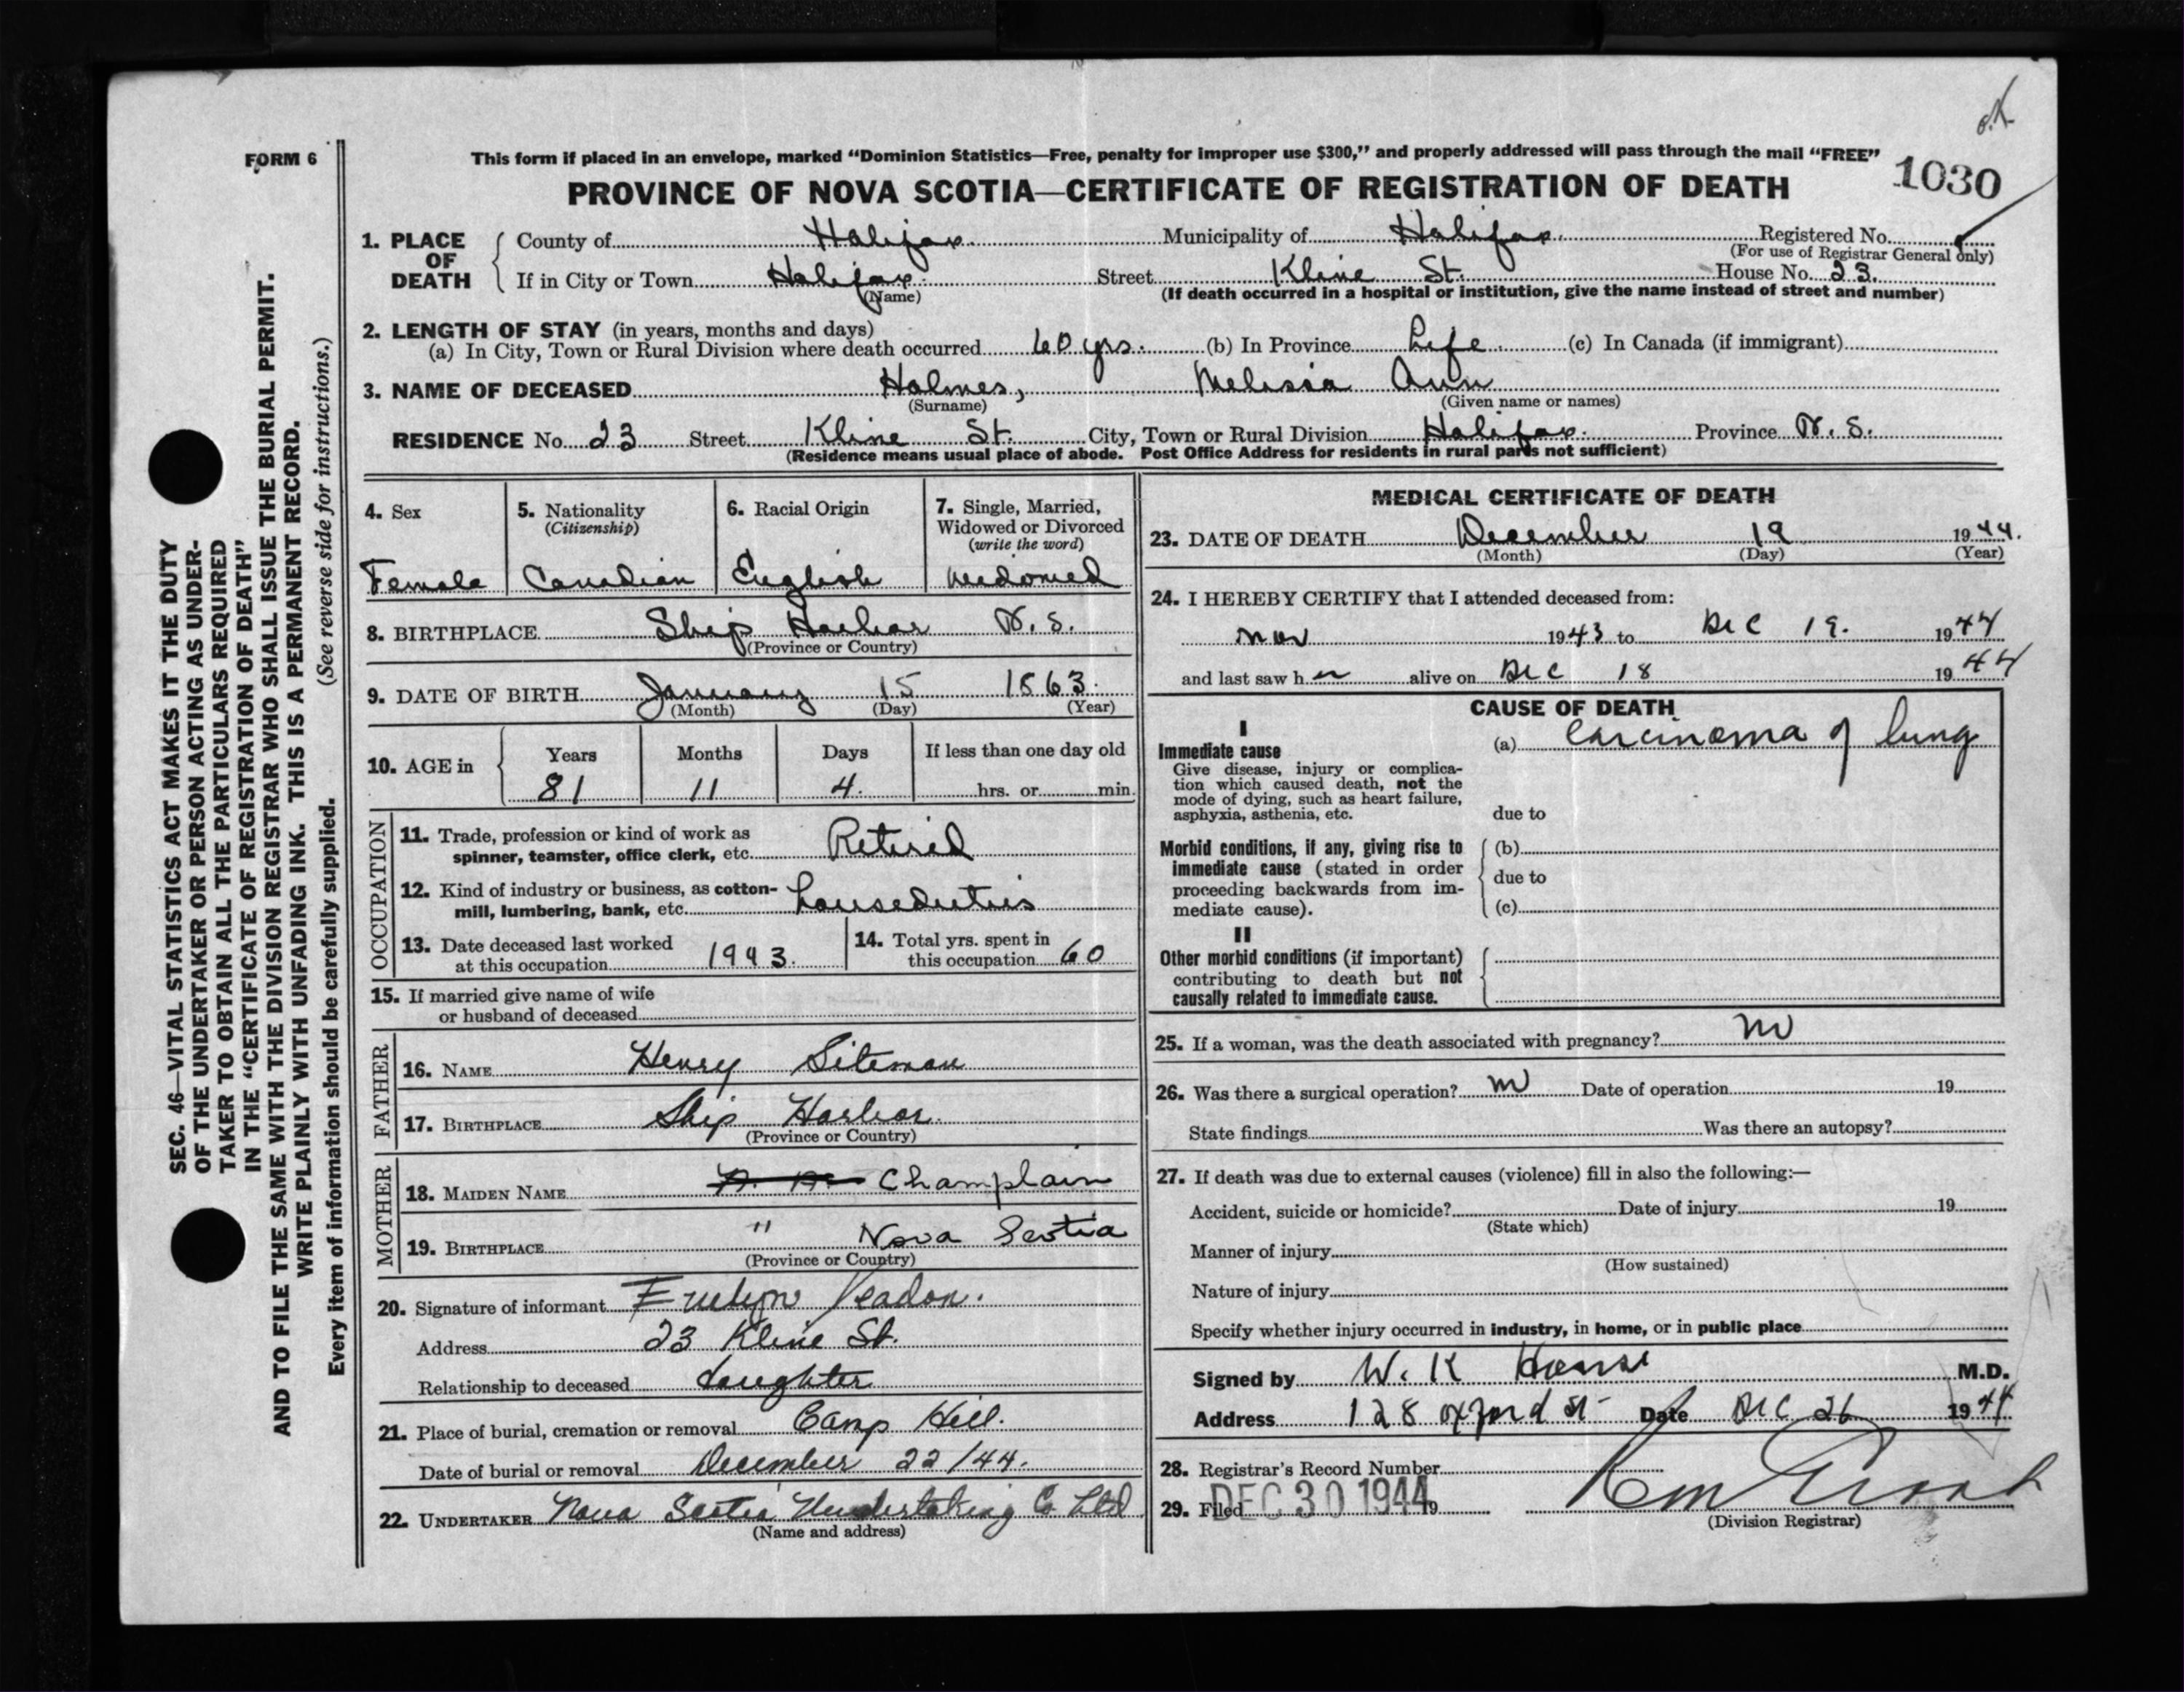 ok
FORM 6
This form if placed in an envelope, marked “Dominion Statistics—Free, penalty for improper use $300,” and properly addressed will pass through the mail “FREE”
1030
PROVINCE OF NOVA SCOTIA—CERTIFICATE OF REGISTRATION OF DEATH
1. PLACE OF DEATH
County of Halifax Municipality of Halifax Registered No.
(For use of Registrar General only)
If in City or Town Halifax Street Kline St. House No. 23.
(Name) (If death occurred in a hospital or institution, give the name instead of street and number)
2. LENGTH OF STAY (in years, months and days)
(a) In City, Town or Rural Division where death occurred 60 yrs. (b) In Province Life (c) In Canada (if immigrant)
3. NAME OF DECEASED Holmes, Melissa Ann
(Surname) (Given name or names)
RESIDENCE No. 23 Street Kline St. City, Town or Rural Division Halifax. Province N. S.
(Residence means usual place of abode. Post Office Address for residents in rural parts not sufficient)
4. Sex
Female
5. Nationality
(Citizenship)
Canadian
6. Racial Origin
English
7. Single, Married,
Widowed or Divorced
(write the word)
Widowed
8. BIRTHPLACE Ship Harbor N. S.
(Province or Country)
9. DATE OF BIRTH January 15 1863.
(Month) (Day) (Year)
10. AGE in
Years Months Days If less than one day old
81 11 4. hrs. or min.
OCCUPATION
11. Trade, profession or kind of work as
spinner, teamster, office clerk, etc. Retired
12. Kind of industry or business, as cotton-
mill, lumbering, bank, etc. houseduties
13. Date deceased last worked
at this occupation 1943.
14. Total yrs. spent in
this occupation 60
15. If married give name of wife
or husband of deceased
FATHER
16. NAME Henry Siteman
17. BIRTHPLACE Ship Harbor.
(Province or Country)
MOTHER
18. MAIDEN NAME Champlain
19. BIRTHPLACE " Nova Scotia
(Province or Country)
20. Signature of informant Evelyn Yeadon.
Address 23 Kline St.
Relationship to deceased daughter
21. Place of burial, cremation or removal Camp Hill.
Date of burial or removal December 22/44.
22. UNDERTAKER Nova Scotia Undertaking Co Ltd
(Name and address)
MEDICAL CERTIFICATE OF DEATH
23. DATE OF DEATH December 19 1944.
(Month) (Day) (Year)
24. I HEREBY CERTIFY that I attended deceased from:
Nov 1943 to Dec 19. 1944
and last saw her alive on Dec 18 1944
CAUSE OF DEATH
I
Immediate cause
Give disease, injury or complica-
tion which caused death, not the
mode of dying, such as heart failure,
asphyxia, asthenia, etc.
(a) Carcinoma of lung
due to
Morbid conditions, if any, giving rise to
immediate cause (stated in order
proceeding backwards from im-
mediate cause).
(b)
due to
(c)
II
Other morbid conditions (if important)
contributing to death but not
causally related to immediate cause.
25. If a woman, was the death associated with pregnancy? no
26. Was there a surgical operation? no Date of operation 19
State findings Was there an autopsy?
27. If death was due to external causes (violence) fill in also the following:—
Accident, suicide or homicide? Date of injury 19
(State which)
Manner of injury
(How sustained)
Nature of injury
Specify whether injury occurred in industry, in home, or in public place
Signed by W. K House M.D.
Address 128 Oxford St Date Dec 26 1944
28. Registrar's Record Number
29. Filed DEC 30 1944 19
(Division Registrar)
SEC. 46—VITAL STATISTICS ACT MAKES IT THE DUTY
OF THE UNDERTAKER OR PERSON ACTING AS UNDER-
TAKER TO OBTAIN ALL THE PARTICULARS REQUIRED
IN THE “CERTIFICATE OF REGISTRATION OF DEATH”
AND TO FILE THE SAME WITH THE DIVISION REGISTRAR WHO SHALL ISSUE THE BURIAL PERMIT.
WRITE PLAINLY WITH UNFADING INK. THIS IS A PERMANENT RECORD.
Every item of information should be carefully supplied. (See reverse side for instructions.)